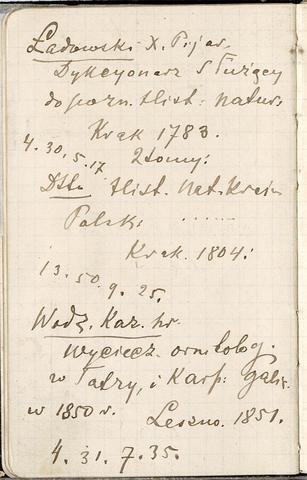 Ładowski X. Pijar.
Dykcyonarz służący
do pozn. Hist: natur:
Krak 1783.
4. 30. 5. 17 2 tomy:
Hist. Nat. Kraiu
Polski ......
Krak. 1804:
13. 50. 9. 25.
Wodz. Kaz. hr.
wyciecz. ornitolog.
w Tatry, i Karp: galic.
w 1850 r. Leszno. 1851.
4. 31. 7. 35.